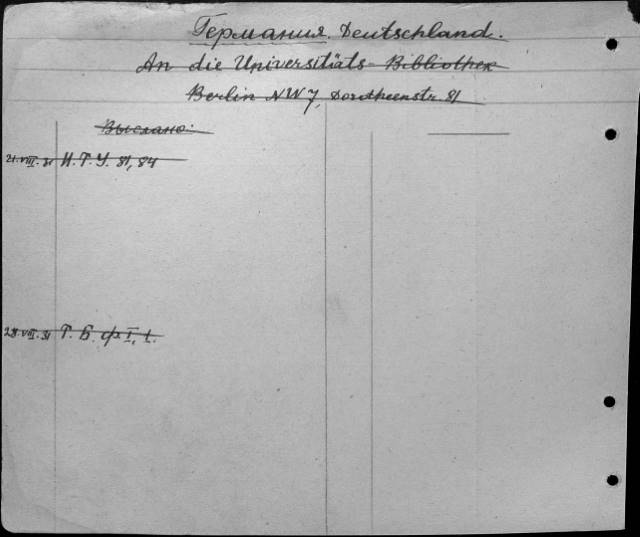 Германия. Deutschland.
An die Universitäts-Bibliothek
Berlin NW 7, Dorotheenstr. 81
Выслано:
21.VIII.31 И.Г.У. 81, 84
29.VIII.31 Г. Б. ф I, 1.